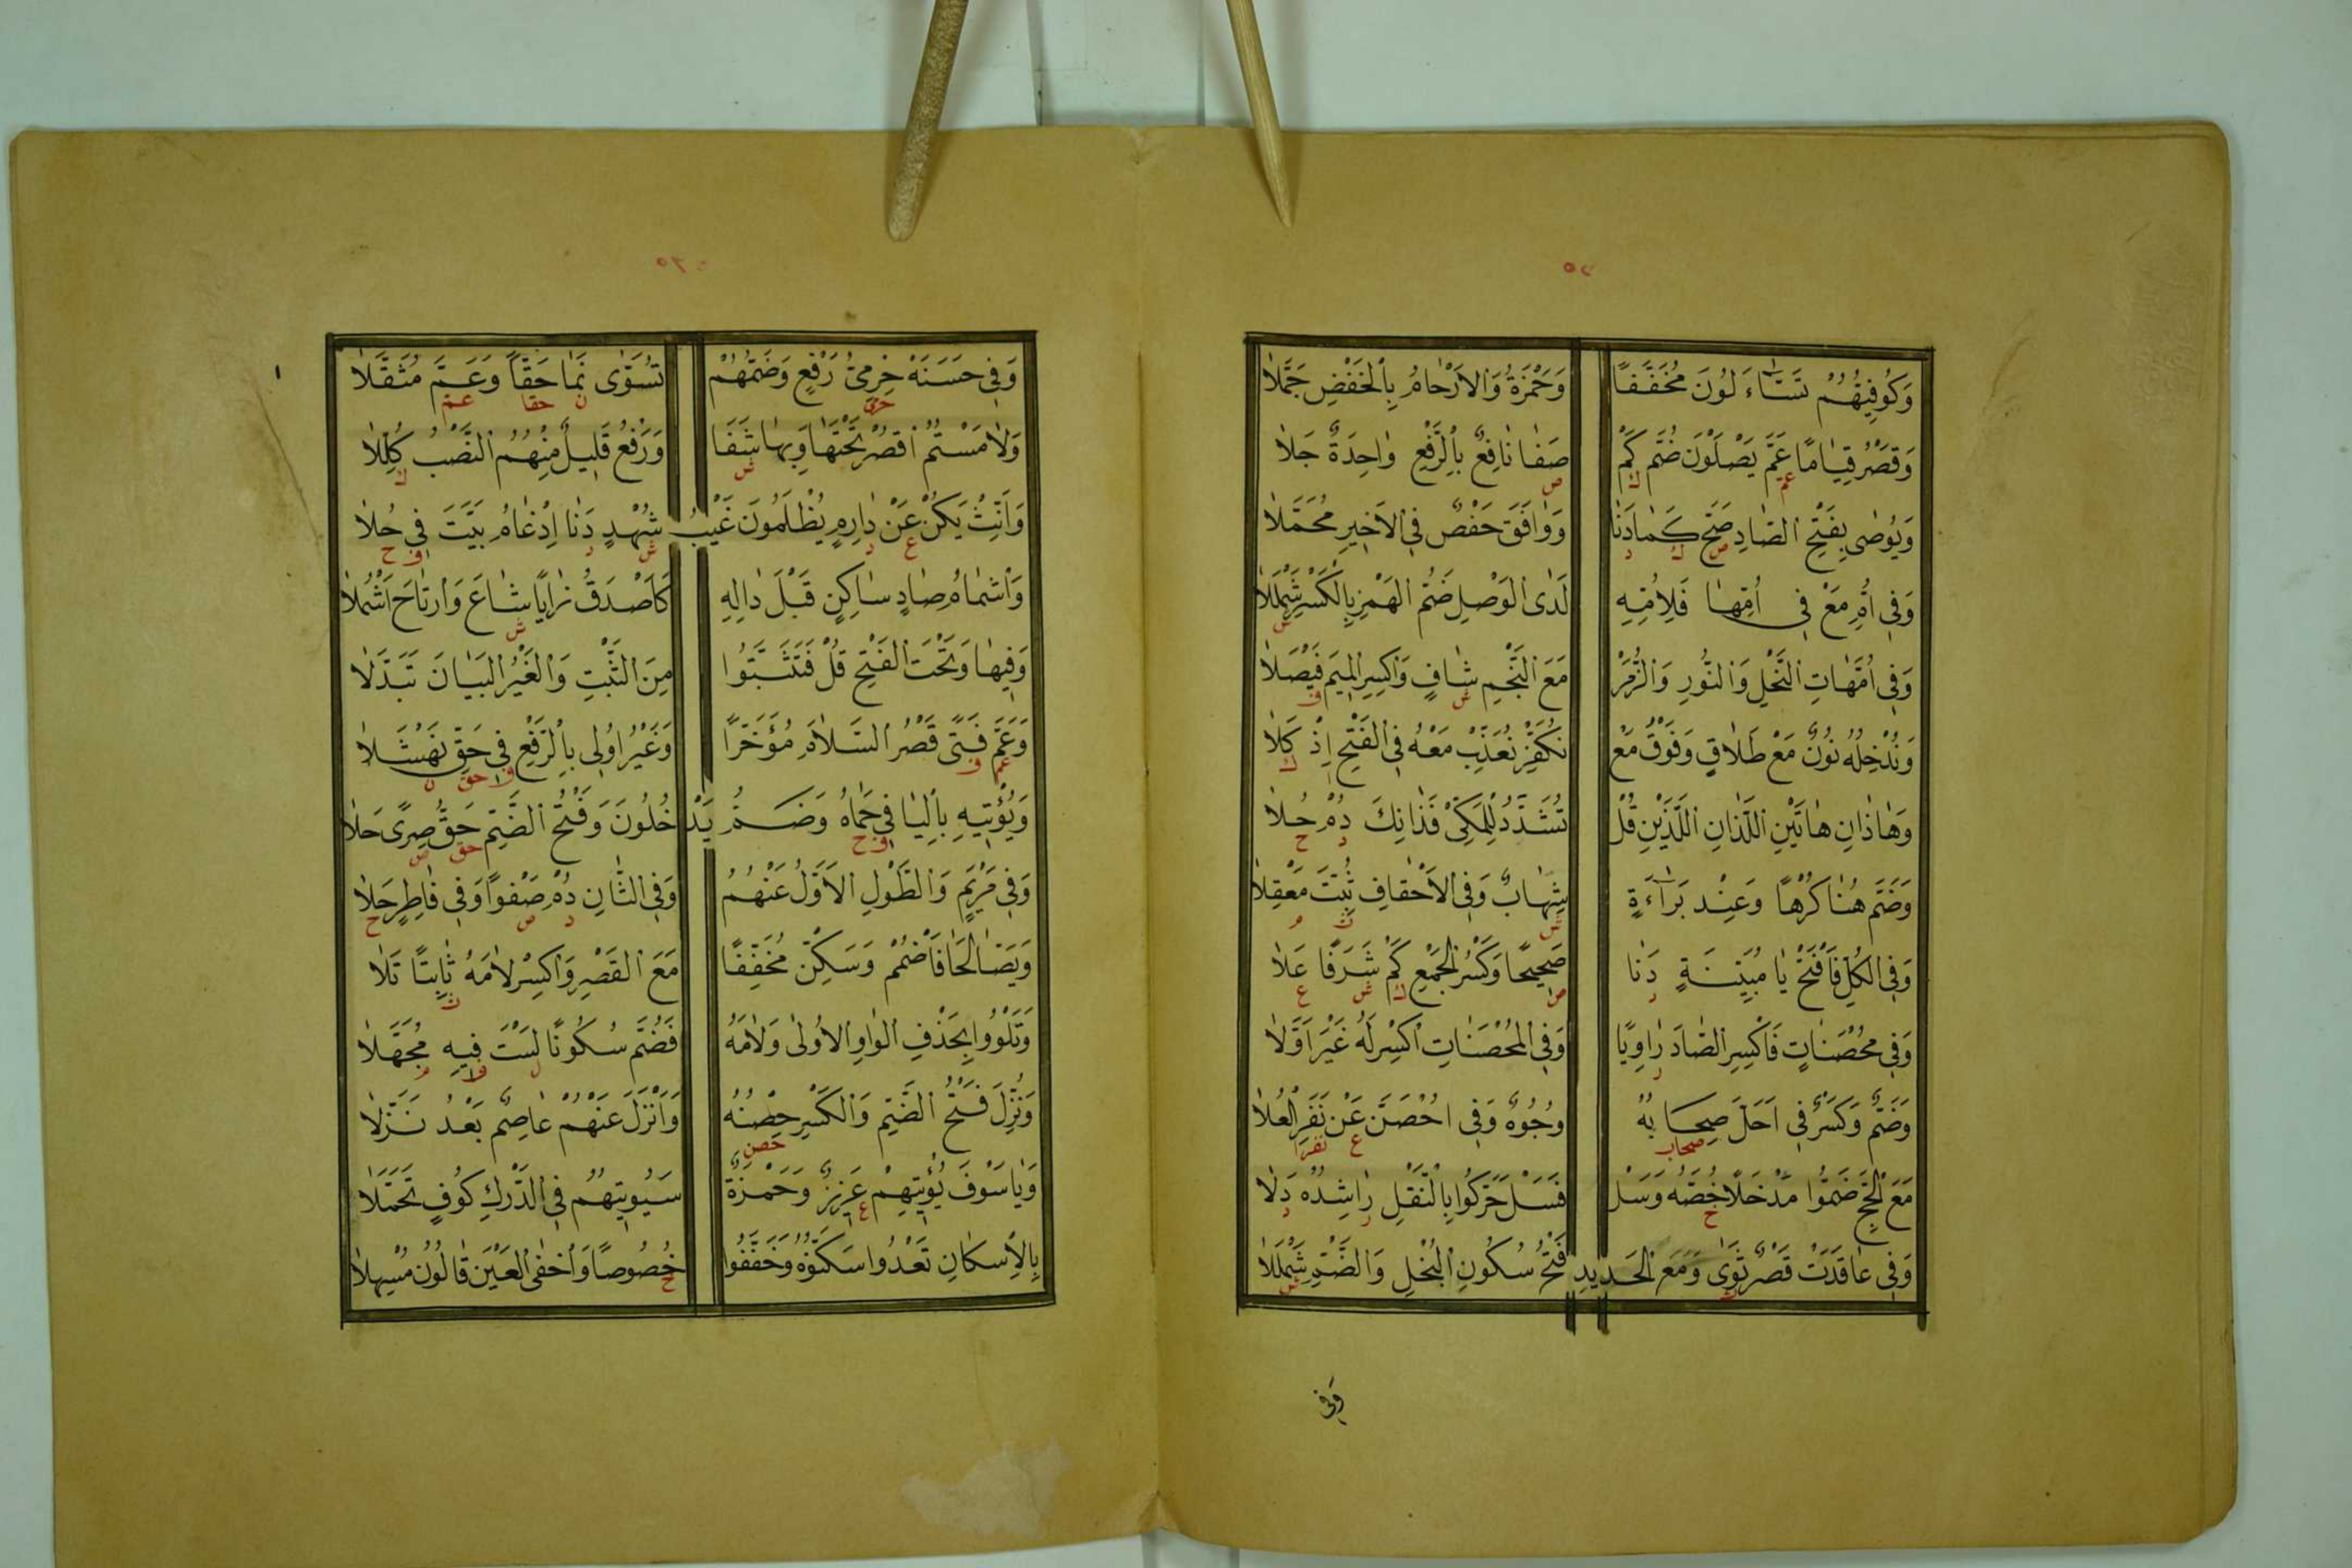 وَكُوفِيُّهُمْ تَسَّاءَلُونَ مُخَفَّفًا وَحَمْزَةُ وَالاَرْحَامُ بِالْخَفْضِ جَمَّلاَ
وَقَصْرُ قِيَامًا عَمَّ يَصْلَوْنَ ضُمَّ كَمْ صَفَا نَافِعٌ بِالرَّفْعِ وَاحِدَةٌ جَلاَ
وَيُوصٰى بِفَتْحِ الصَّادِ صَحَّ كَمَا دَنَا وَوَافَقَ حَفْصٌ فِي الاَخِيرِ مُحَمَّلاَ
وَفِى اُمِّ مَعْ فِي اُمِّهَا فَلِاُمِّهِ لَدَى الْوَصْلِ ضَمُّ الهَمْزِ بِالْكَسْرِ شَمْلَلاَ
وَفِى اُمَّهَاتِ النَّحْلِ وَالنُّورِ وَالزُّمَرْ مَعَ النَّجْمِ شَافٍ وَاكْسِرِ المِيمَ فَيْصَلاَ
وَنُدْخِلُهُ نُونٌ مَعْ طَلاَقٍ وَفَوْقُ مَعْ نُكَفِّرْ نُعَذِّبْ مَعْهُ فِى الْفَتْحِ اِذْ كَلاَ
وَهَاذَانِ هَاتَيْنِ اللَّذَانِ اللَّذَيْنِ قُلْ تُشَدَّدُ لِلْمَكِّىْ فَذَانِكَ دُمْ حُلاَ
وَضَمَّ هُنَا كَرْهًا وَعِنْدَ بَرَآءَةٍ شِهَابٌ وَفِى الاَحْقَافِ ثُبِّتَ مَعْقِلاَ
وَفِى الْكُلِّ فَافْتَحْ يَا مُبَيِّنَةٍ دَنَا صَحِيحًا وَكَسْرُ الْجَمْعِ كَمْ شَرَفًا عَلاَ
وَفِى مُحْصَنَاتٍ فَاكْسِرِ الصَّادَ رَاوِيًا وَفِى الْمُحْصَنَاتِ اكْسِرْ لَهُ غَيْرَ اَوَّلاَ
وَضَمٌّ وَكَسْرٌ فِى اَحَلَّ صِحَابُهُ وُجُوهٌ وَفِى احْصَنَّ عَنْ نَفَرِ الْعُلاَ
مَعَ الْحَجِّ ضَمُّوا مَدْخَلاً خُصَّهُ وَسَلْ فَسَلْ حَرَّكُوا بِالنَّقْلِ رَاشِدُهُ دَلاَ
وَفِى عَاقَدَتْ قَصْرٌ ثَوٰى وَمَعَ الْحَدِيدِ فَتْحُ سُكُونِ الْبُخْلِ وَالضَّمِّ شَمْلَلاَ
وَفِى
وَفِى حَسَنَهْ حِرْمِىُّ رَفْعٍ وَضَمُّهُمْ تُسَوّٰى نَمَا حَقًّا وَعَمَّ مُثَقَّلاَ
وَلاَمَسْتُمُ اقْصُرْ تَحْتَهَا وَبِهَا شَفَا وَرَفْعُ قَلِيلٌ مِنْهُمُ النَّصْبُ كُلِّلاَ
وَاَنِّثْ يَكُنْ عَنْ دَارِمٍ يُظْلَمُونَ غَيْبُ شُهْدٍ دَنَا اِدْغَامُ بَيَّتَ فِى حُلاَ
وَاشْمَامُ صَادٍ سَاكِنٍ قَبْلَ دَالِهِ كَاَصْدَقُ زَايًا شَاعَ وَارْتَاحَ اَشْمُلاَ
وَفِيهَا وَتَحْتَ الفَتْحِ قُلْ فَتَثَبَّتُوا مِنَ الثَّبْتِ وَالْغَيْرُ الْبَيَانَ تَبَدَّلاَ
وَعَمَّ فَتًى قَصْرُ السَّلاَمِ مُؤَخَّرًا وَغَيْرُ اُولِى بِالرَّفْعِ فِى حَقِّ نَهْشَلاَ
وَيُؤْتِيهِ بِالْيَا فِى حِمَاهُ وَضَمُّ يَدْخُلُونَ وَفَتْحُ الضَّمِّ حَقُّ صِرًى حَلاَ
وَفِى مَرْيَمٍ وَالطَّوْلِ الاَوَّلُ عَنْهُمُ وَفِى الثَّانِ دُمْ صَفْوًا وَفِى فَاطِرٍ حَلاَ
وَيَصَّالَحَا فَاضْمُمْ وَسَكِّنْ مُخَفِّفًا مَعَ القَصْرِ وَاكْسِرْ لاَمَهُ ثَابِتًا تَلاَ
وَتَلْوُوا بِحَذْفِ الْوَاوِ الاُولٰى وَلاَمَهُ فَضُمَّ سُكُونًا لَسْتَ فِيهِ مُجَهَّلاَ
وَنُزِّلَ فَتْحُ الضَّمِّ وَالكَسْرِ حِصْنُهُ وَاَنْزَلَ عَنْهُمْ عَاصِمٌ بَعْدُ نَزَّلاَ
وَيَا سَوْفَ يُؤْتِيهِمْ عَزِيزٌ وَحَمْزَةٌ سَيُوتِيهُمُ فِى الدَّرْكِ كُوفٍ تَحَمَّلاَ
بِالاِسْكَانِ تَعْدُوا سَكِّنُوهُ وَخَفِّفُوا خُصُوصًا وَاَخْفَى الْعَيْنَ قَالُونُ مُسْهِلاَ